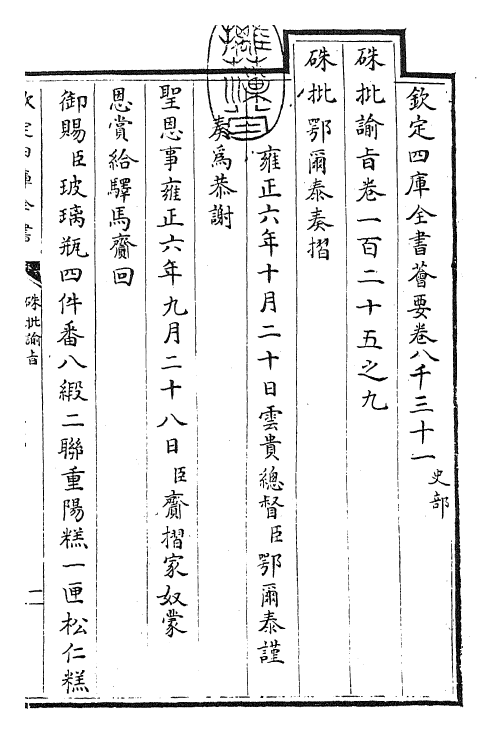 欽定四庫全書薈要卷八千三十一 史部
硃批諭旨卷一百二十五之九
硃批鄂爾泰奏摺
雍正六年十月二十日雲貴總督臣鄂爾泰謹
奏爲恭謝
聖恩事雍正六年九月二十八日臣齎摺家奴蒙
恩賞給驛馬齎回
御賜臣玻璃瓶四件番八緞二聯重陽糕一匣松仁糕
欽定四庫全書
硃批諭旨